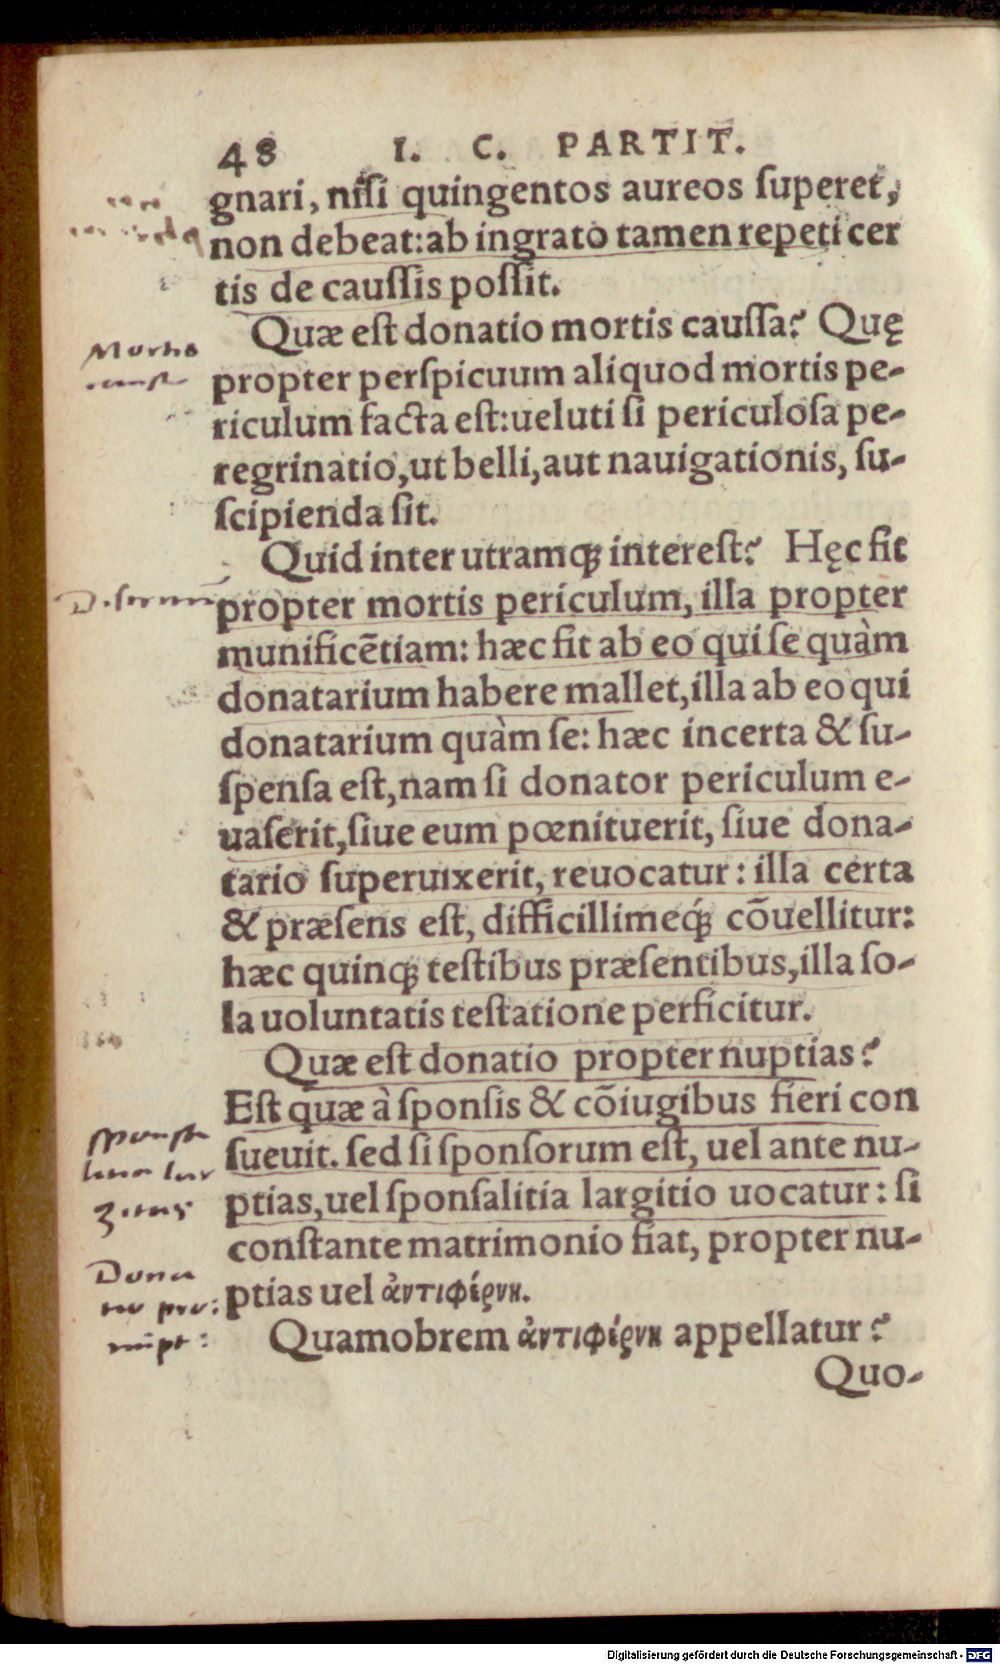 48 I. C. PARTIT.
gnari, nisi quingentos aureos superet,
non debeat: ab ingrato tamen repeti cer
tis de caussis possit.
Quæ est donatio mortis caussa? Quę
propter perspicuum aliquod mortis pe-
riculum facta est: ueluti si periculosa pe-
regrinatio, ut belli, aut nauigationis, su-
scipienda sit.
Quid inter utramqꝫ interest? Hęc fit
propter mortis periculum, illa propter
munificẽtiam: hæc fit ab eo qui se quàm
donatarium habere mallet, illa ab eo qui
donatarium quàm se: hæc incerta & su-
spensa est, nam si donator periculum e-
uaserit, siue eum pœnituerit, siue dona-
tario superuixerit, reuocatur: illa certa
& præsens est, difficillimeqꝫ́ cõuellitur:
hæc quinqꝫ testibus præsentibus, illa so-
la uoluntatis testatione perficitur.
Quæ est donatio propter nuptias?
Est quæ à sponsis & cõiugibus fieri con
sueuit. sed si sponsorum est, uel ante nu-
ptias, uel sponsalitia largitio uocatur: si
constante matrimonio fiat, propter nu-
ptias uel ἀντιφέρνη.
Quamobrem ἀντιφέρνη appellatur?
Quo-
Mortis
Dona
Digitalisierung gefördert durch die Deutsche Forschungsgemeinschaft - DFG